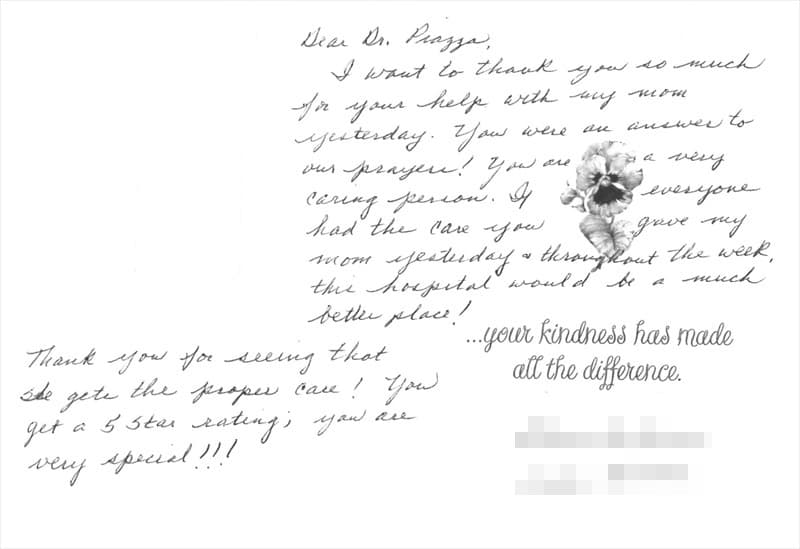 Dear Dr. Piazza,
I want to thank you so much
for your help with my mom
yesterday. You were an answer to
our prayers! You are a very
caring person. If everyone
had the care you gave my
mom yesterday & throughout the week,
this hospital would be a much
better place!
...your kindness has made
all the difference.
Thank you for seeing that
she gets the proper care! You
get a 5 Star rating; you are
very special!!!